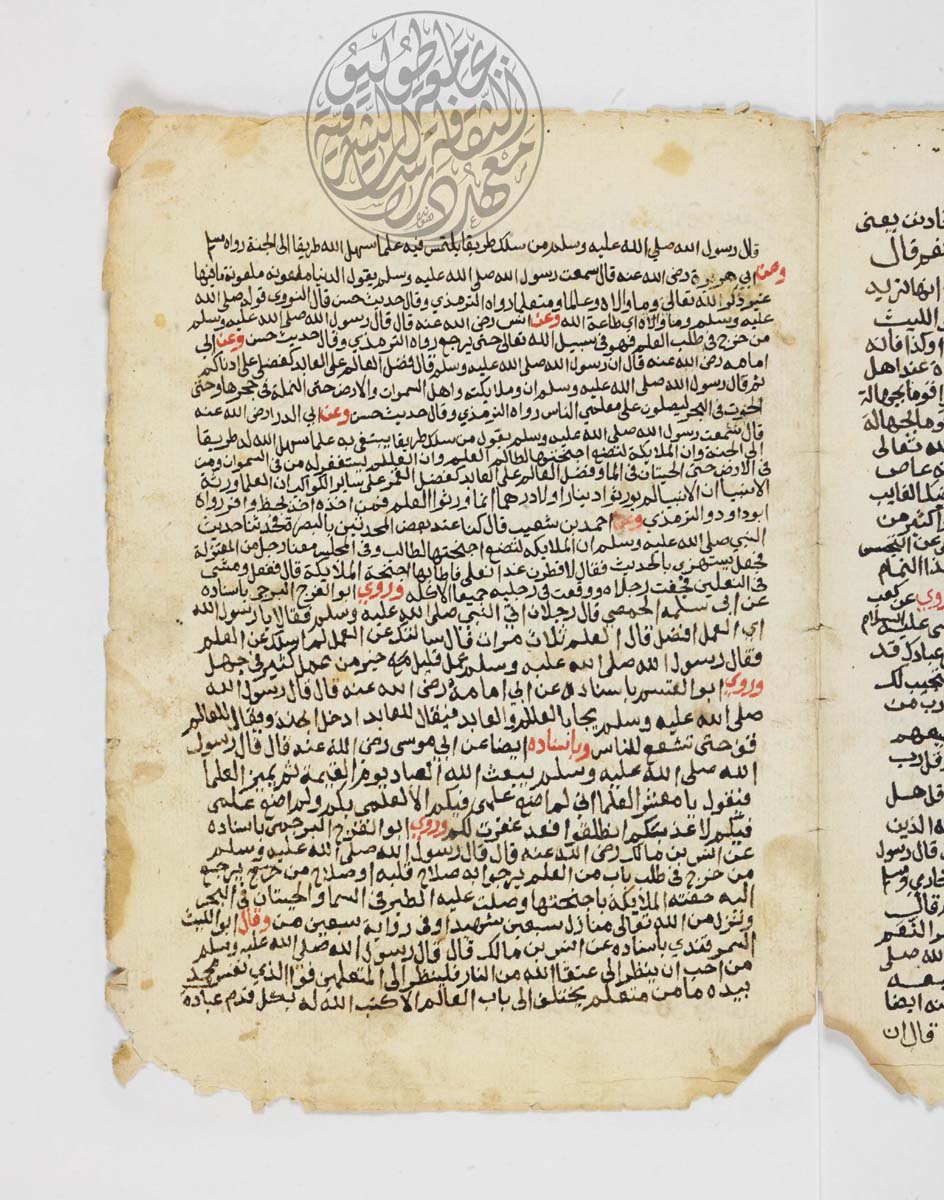 قال رسول الله صلى الله عليه وسلم من سلك طريقا يلتمس فيه علما سهل الله طريقا الى الجنة رواه مسلم
وعن ابي هريرة رضى الله عنه قال سمعت رسول الله صلى الله عليه وسلم يقول الدنيا ملعونة ملعونة ما فيها
غير ذكر الله تعالى وما والاه وعلما ومتعلما رواه الترمذي وقال حديث حسن قال النووى قوله صلى الله
عليه وسلم وما والاه اى طاعة الله وعن انس رضى الله عنه قال قال رسول الله صلى الله عليه وسلم
من خرج فى طلب العلم فهو فى سبيل الله تعالى حتى يرجع رواه الترمذي وقال حديث حسن وعن ابى
امامه رضى الله عنه قال ان رسول الله صلى الله عليه وسلم قال فضل العالم على العابد كفضلى على ادناكم
ثم قال رسول الله صلى الله عليه وسلم ان وملائكته واهل السموات والارض حتى النملة فى جحرها وحتى
الحوت فى البحر ليصلون على معلمي الناس رواه الترمذي وقال حديث حسن وعن ابي الدردا رضى الله عنه
قال سمعت رسول الله صلى الله عليه وسلم يقول من سلك طريقا يبتغى به علما سهل الله له طريقا
الى الجنة وان الملايكة لتضع اجنحتها لطالب العلم وان العالم ليستغفر له من فى السموات ومن
فى الارض حتى الحيتان فى الما وفضل العالم على العابد كفضل القمر على ساير الكواكب ان العلما ورثة
الانبيا ان الانبيا لم يورثوا دينارا ولا درهما انما ورثوا العلم فمن اخذه اخذ بحظ وافر رواه
ابو داود والترمذي وعن احمد بن شعيب قال كنا عند بعض المحدثين بالبصرة فحدثنا حديث
النبي صلى الله عليه وسلم ان الملايكة لتضع اجنحتها الطالب وفى المجلس معنا رجل من المعتزلة
فجعل يستهزى بالحديث فقال لاقطرن غدا نعلى فاطا بها اجنحة الملايكة قال ففعل ومشى
فى النعلين فجفت رجلاه ووقعت فى رجليه جميعا الاكلة وروي ابو الفرج البرجى باسناده
عن ابى سلمه الحمصي قال رجلان الى النبي صلى الله عليه وسلم فقالا يا رسول الله
اي العمل افضل قال العلم ثلاث مرات قال سالتك عن العمل لم اسلك عن العلم
فقال رسول الله صلى الله عليه وسلم عمل قليل معه خير من عمل كثير فى جهل
وروي ابو القسم باسناده عن ابي امامة رضى الله عنه قال قال رسول الله
صلى الله عليه وسلم يجابا لعالم والعابد فيقال للعابد ادخل الجنة ويقال للعالم
قف حتى تشفع للناس وباسناده ايضا عن ابي موسى رضى الله عنه قال قال رسول
الله صلى الله عليه وسلم يبعث الله العباد يوم القيمة ثم يميز العلما
فيقول يا معشر العلما اني لم اضع علمى فيكم الا لعلمى بكم ولم اضع علمى
فيكم لاعذبكم انطلقوا فقد غفرت لكم وروي ابو الفرج البرجى باسناده
عن انس بن مالك رضى الله عنه قال قال رسول الله صلى الله عليه وسلم
من خرج فى طلب باب من العلم يرجوا به صلاح قلبه او صلاح من خرج يرجع
اليه حفته الملايكة باجنحتها وصلت عليه الطير فى السما والحيتان فى البحر
ونزل من الله تعالى منازل سبعين شهيدا وفى رواية سبعين من وقال ابو الليث
السمرقندي باسناده عن انس بن مالك قال قال رسول الله صلى الله عليه وسلم
من احب ان ينظر الى عتقا الله من النار فلينظر الى المتعلمين فوالذي نفس محمد
بيده ما من متعلم يختلف الى باب العالم الا كتب الله له بكل قدم عبادة
معهد الثقافة والدراسات الشرقية
يعنى
فقال
الليث
وكذا فانه
عند اهل
الله تعالى
عاص
اكثر من
التمام
وروي عن كعب
عليه السلام
من
رب
قل هل
الذين
قال رسول
الله صلى
ايضا
قال ان